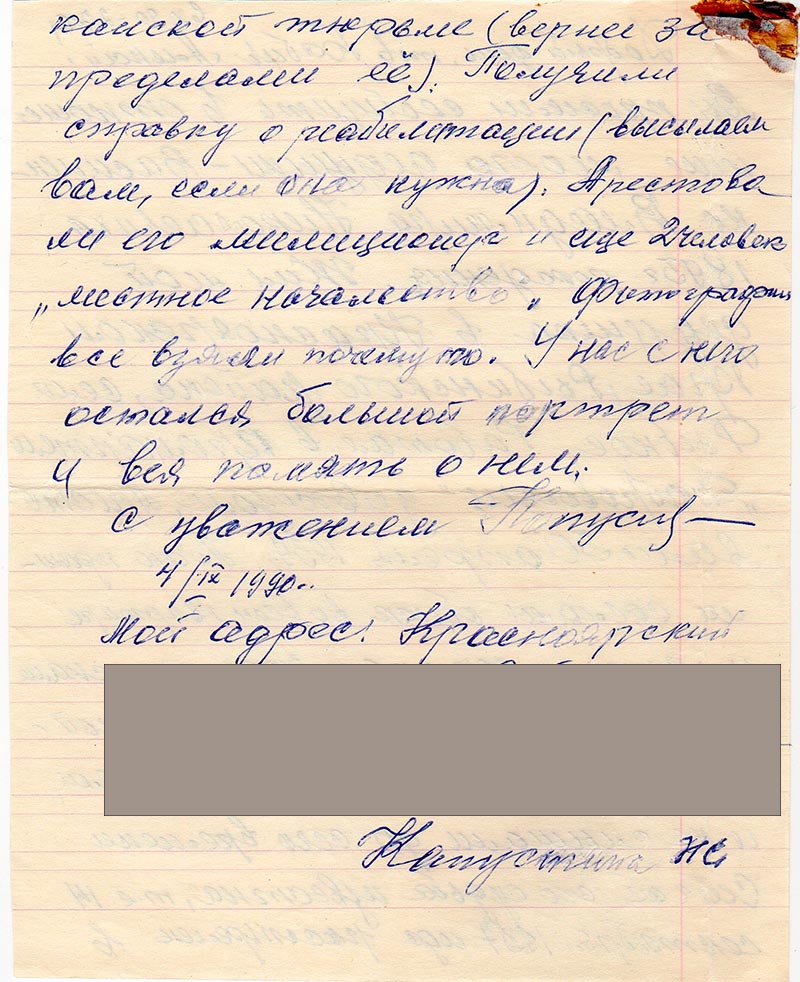 канской тюрьме (вернее за
пределами её). Получили
справку о реабилитации (высылаем
вам, если она нужна). Арестова
ли его милиционер и еще 2 человек
„местное начальство„ Фотографии
все взяли почему то. У нас с него
остался большой портрет
и вся память о нем.
С уважением Капуст
4/IX 1990..
Мой адрес: Красноярский
Капустина НС